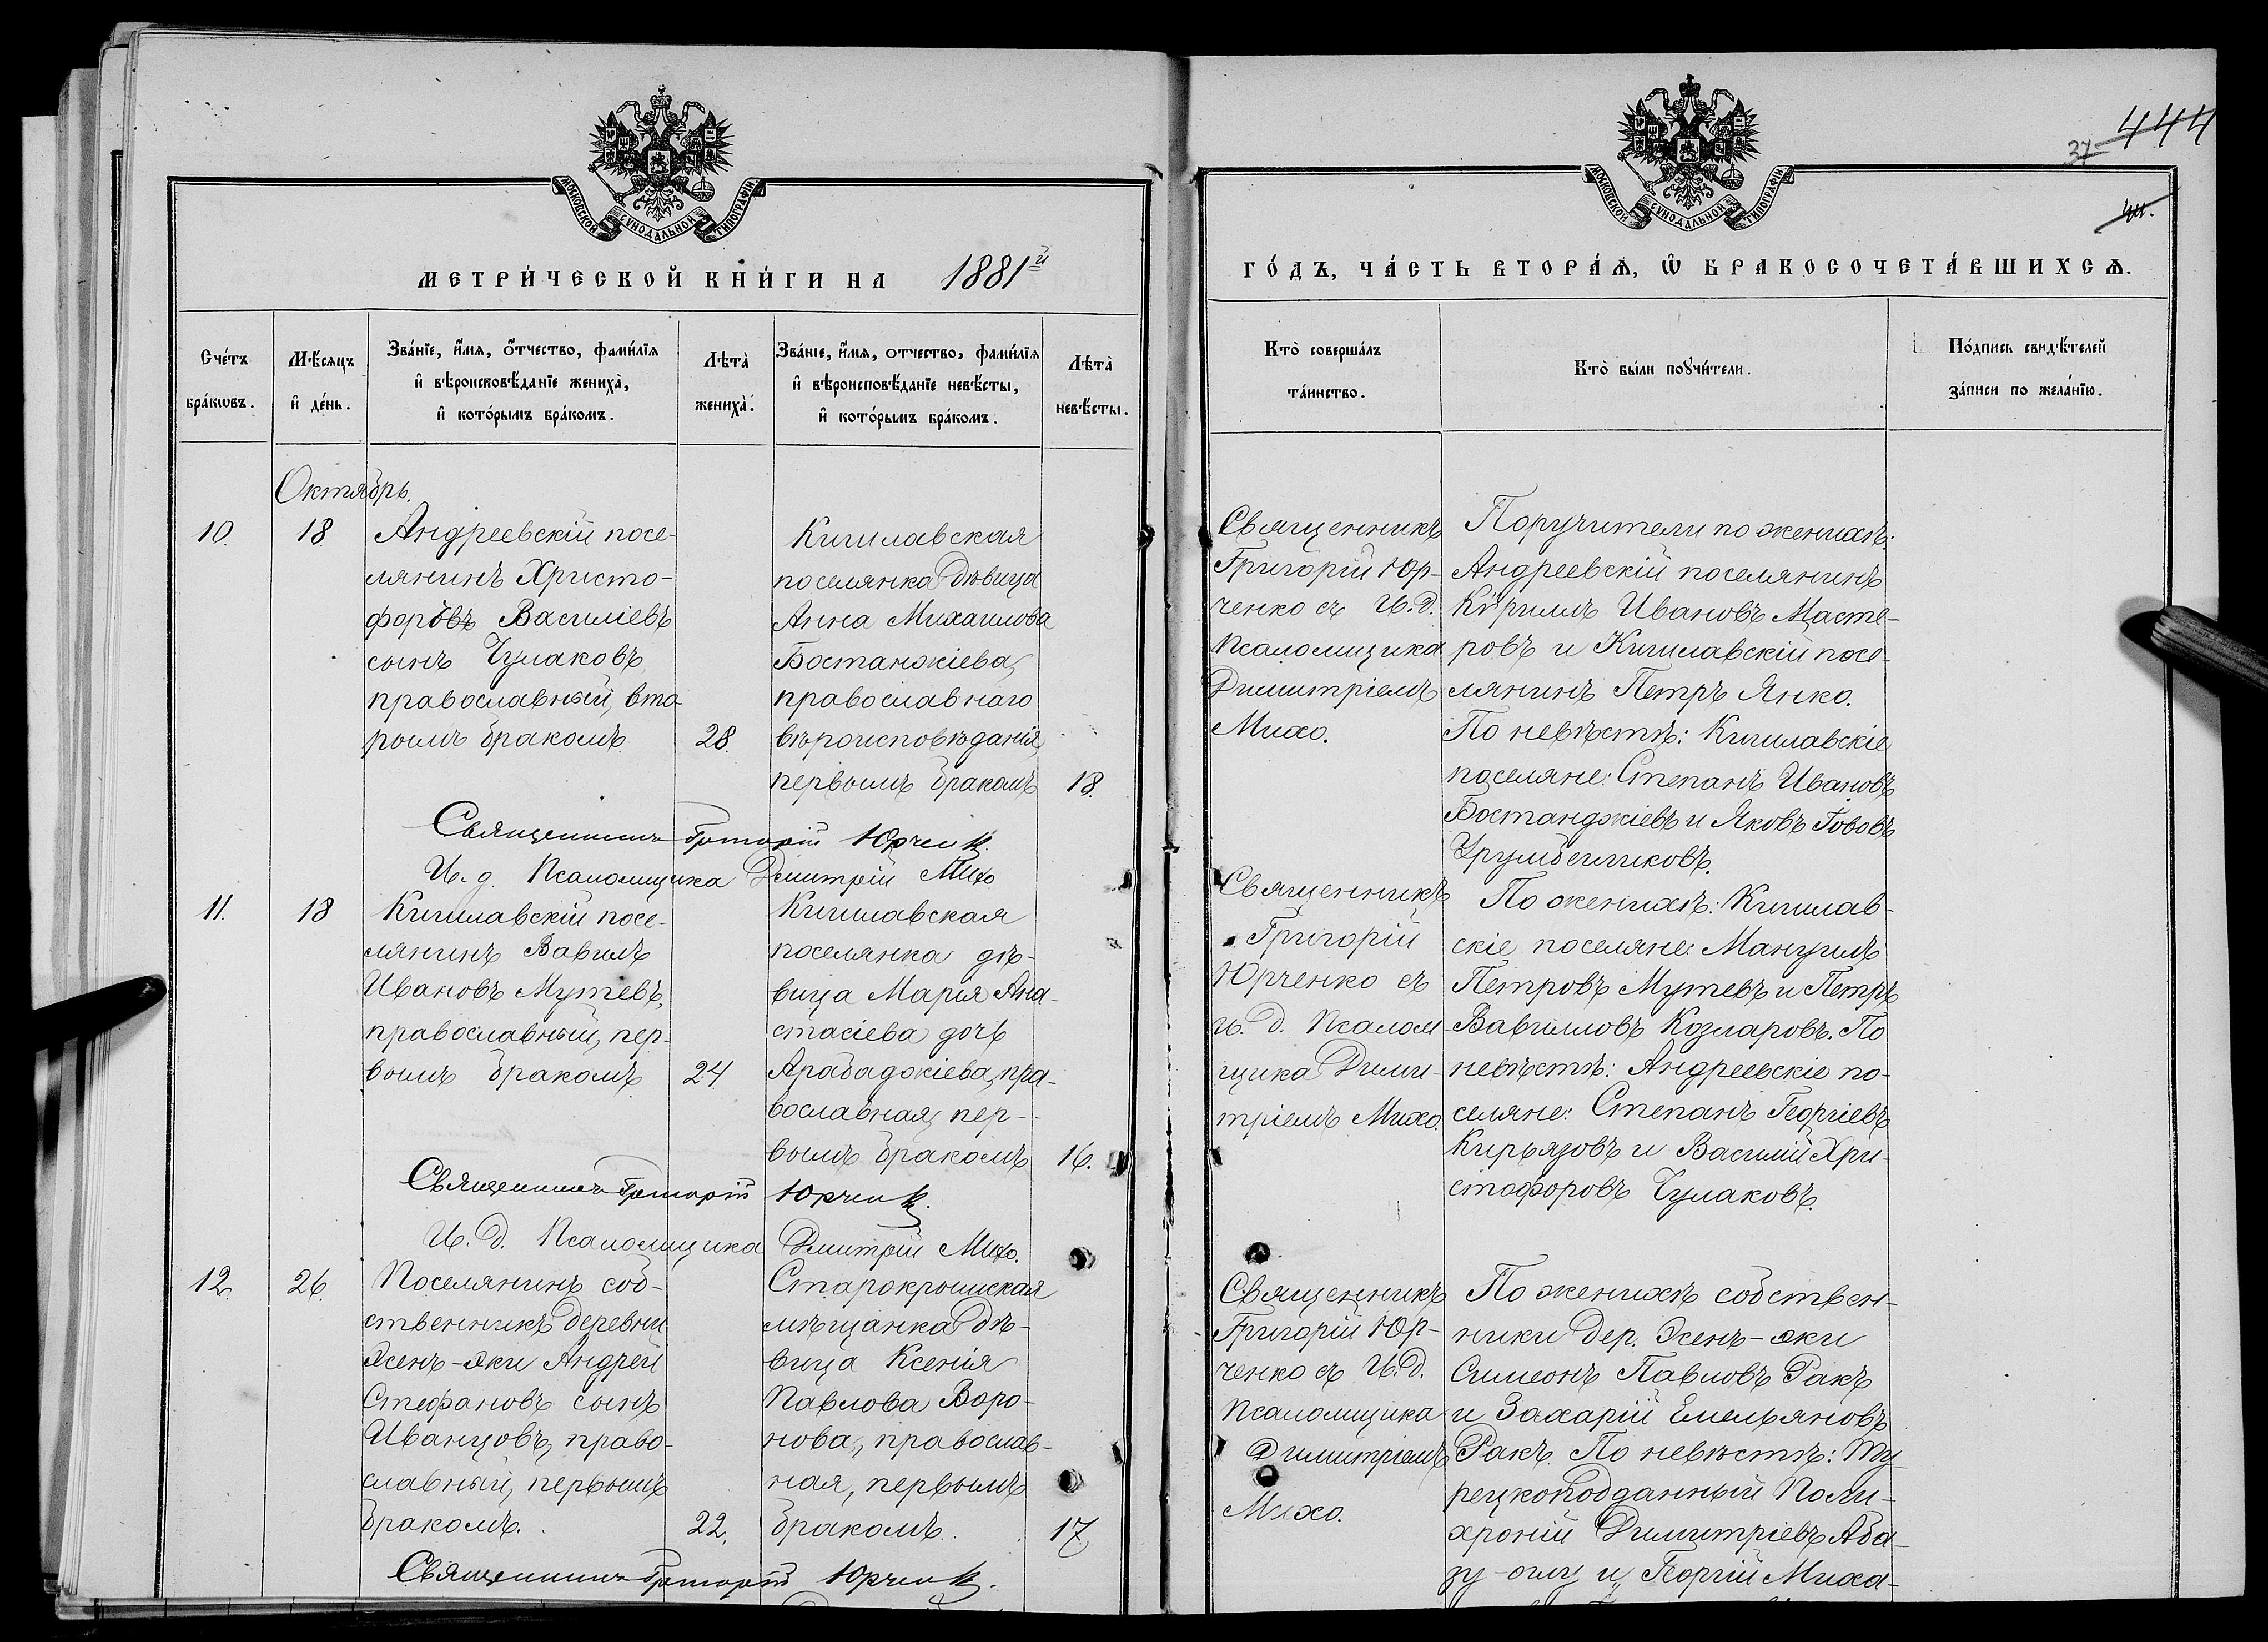 МОСКОВСКОЙ СУНОДАЛЬНОЙ ТИПОГРАФІИ
МЕТРИ́ЧЕСКОЙ КНИ́ГИ НА 1881й
Сче́тъ бра́кωвъ.
Мѣ́сяцъ и҆ де́нь.
Зва́нїе, и҆́мя, ѻ҆́тчество, фами́лїя
и҆ вѣроисповѣ́данїе жениха̀,
и҆ кото́рымъ бра́комъ.
Лѣта̀ жениха̀.
Зва́нїе, и҆́мя, отчество, фами́лїя
и҆ вѣроисповѣ́данїе невѣ́сты,
и҆ кото́рымъ бра́комъ.
Лѣта̀ невѣ́сты.
Октябрь.
10. 18
Андреевскій посе-
лянинъ Христо-
форовъ Василіевъ
сынъ Чулаковъ,
православный, вто-
рымъ бракомъ 28.
Кишлавская
поселянка Дѣвица
Анна Михаилова
Бостанжіева,
православнаго
вѣроисповѣданія,
первымъ бракомъ 18.
Священникъ Григорій Юрченко.
И. д. Псаломщика Димитрій Михо
11. 18
Кишлавскій посе-
лянинъ Вавилъ
Ивановъ Мутевъ,
православный, пер-
вымъ бракомъ 24
Кишлавская
поселянка дѣ-
вица Марія Ана-
стасіева дочь
Арабаджіева, пра-
вославная, пер-
вымъ бракомъ 16.
Священникъ Григорій Юрченко.
И. Д. Псаломщика Димитрій Михо.
12. 26.
Поселянинъ соб-
ственникъ деревни
Эсенъ-эки Андрей
Стефановъ сынъ
Иванцовъ, право-
славный, первымъ
бракомъ. 22.
Старокрымская
мѣщанка Дѣ-
вица Ксенія
Павлова Воро-
нова, православ-
ная, первымъ
бракомъ. 17.
Священникъ Григорій Юрченко.
444
37
МОСКОВСКОЙ СУНОДАЛЬНОЙ ТИПОГРАФІИ
ГО́ДЪ, ЧА́СТЬ ВТОРА́Я, Ѽ БРАКОСОЧЕТА́ВШИХСЯ.
Кто̀ соверша́лъ
та́инство.
Кто̀ бы́ли поꙋчи́тели.
По́дпись свидѣ́телей
за́писи по жела́нїю.
Священникъ
Григорій Юр-
ченко съ И. Д.
Псаломщика
Димитріемъ
Михо.
Поручители по женихѣ:
Андреевскій поселянинъ
Кѵриллъ Ивановъ Масте-
ровъ и Кишлавскій посе-
лянинъ Петръ Янко.
По невѣстѣ: Кишлавскіе
поселяне: Степанъ Ивановъ
Бостанджіевъ и Яковъ
Священникъ
Григорій
Юрченко съ
и. д. Псалом
щика Дими-
тріемъ Михо.
По женихѣ: Кишлав-
скіе поселяне: Мануилъ
Петровъ Мутевъ и Петръ
Вавиловъ Козларовъ. По
невѣстѣ: Андреевскіе по-
селяне: Степанъ Георгіевъ
Кирьязовъ и Василій Хри-
стофоровъ Чулаковъ.
Священникъ
Григорій Юр-
ченко съ И. Д.
Псаломщика
Димитріемъ
Михо.
По женихѣ собствен-
ники дер. Эсенъ-эки
Симеонъ Павловъ Ракъ
и Захарій Емельяновъ
Ракъ. По невѣстѣ: Ту-
рецкоподданный Поли-
хроній Димитріевъ Аба-
зу-оглу и Георгій Миха-